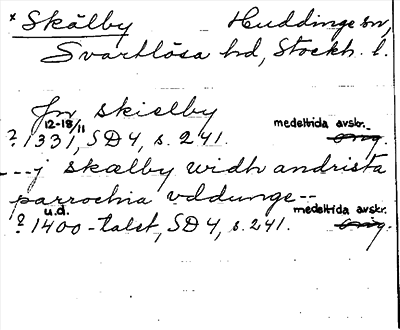 * Skälby Huddinge sn,
Svartlösa hd, Stockh. l.
Jn skielby
12-18/11 medeltida avskr.
? 1331, SD 4, s. 241. Orig.
---j skælby widh andrista
parrochia vddunge--
u.d. medeltida avskr.
? 1400-talet, SD 4, s. 241. Orig.